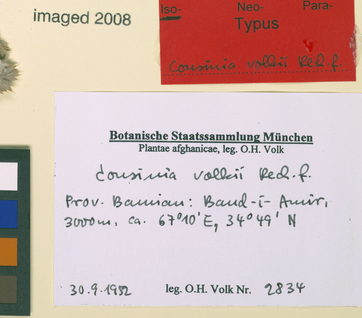 imaged 2008
Iso- Neo- Para-
Typus
Cousinia volkii Rech. f.
Botanische Staatssammlung München
Plantae afghanicae, leg. O.H. Volk
Cousinia volkii Rech. f.
Prov. Bamian: Band-i-Amir,
3000m, ca. 67°10'E, 34°49' N
30.9.1952 leg. O.H. Volk Nr. 2834